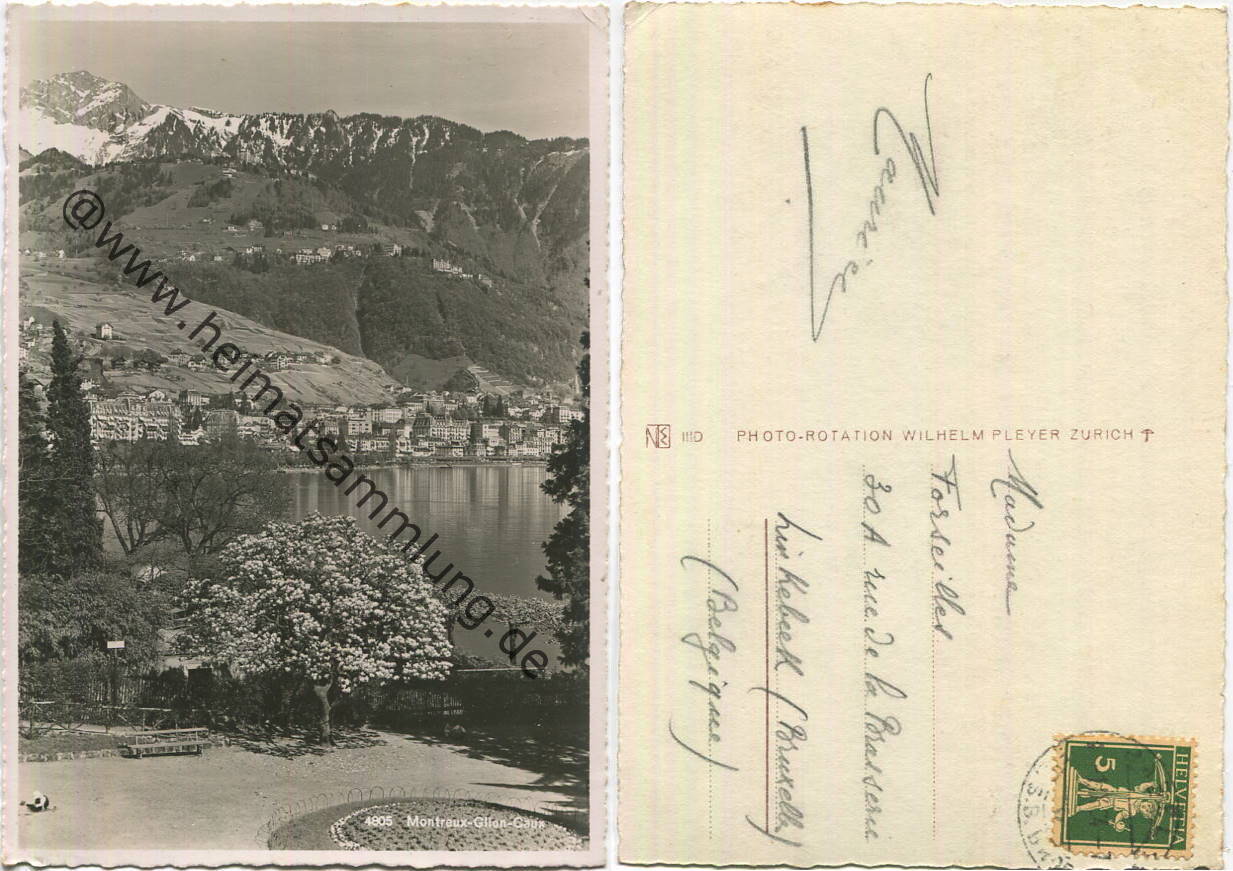 @www.heimatsammlung.de
4805 Montreux-Glion-Caux
NE IIID PHOTO-ROTATION WILHELM PLEYER ZURICH
Madame
Forseilles
30A rue de la Brasserie
Linkebeek (Bruxelles)
(Belgique)
HELVETIA
5